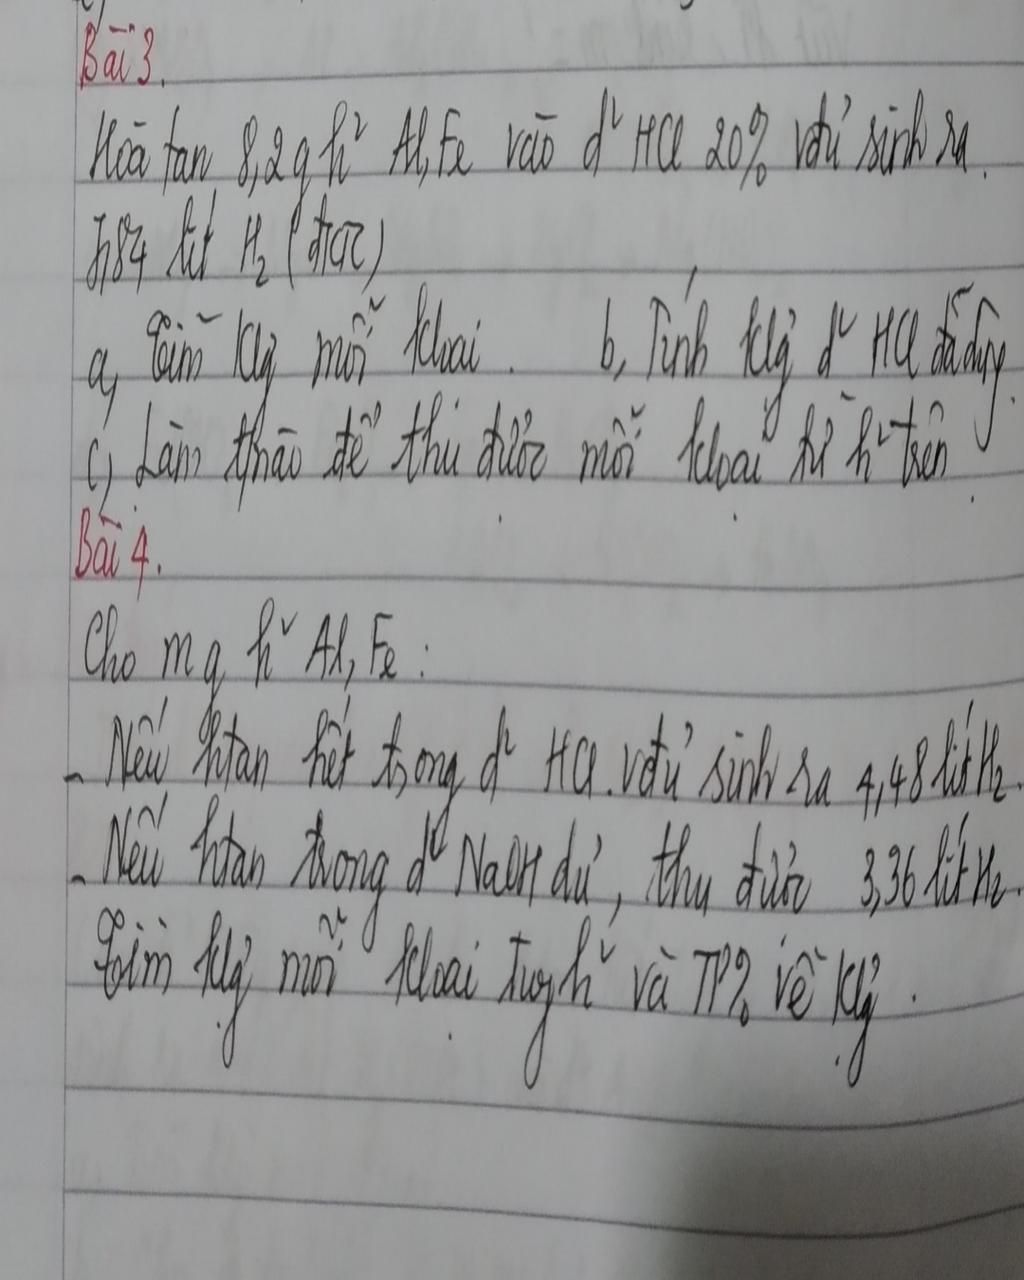 Bài 3.
Hòa tan 8,2g h² Al, Fe vào d² HCl 20% vđủ sinh ra
7,84 lít H₂ (đktc)
a, Tìm klg mỗi kloại. b, Tính klg d² HCl đã dùng.
c, Làm thế nào để thu được mỗi kloại từ h² trên
Bài 4.
Cho m g h² Al, Fe :
- Nếu htan hết trong d² HCl vđủ sinh ra 4,48 lít H₂.
- Nếu htan trong d² NaOH dư, thu được 3,36 lít H₂.
Tìm klg mỗi kloại trong h² và TP% về klg.